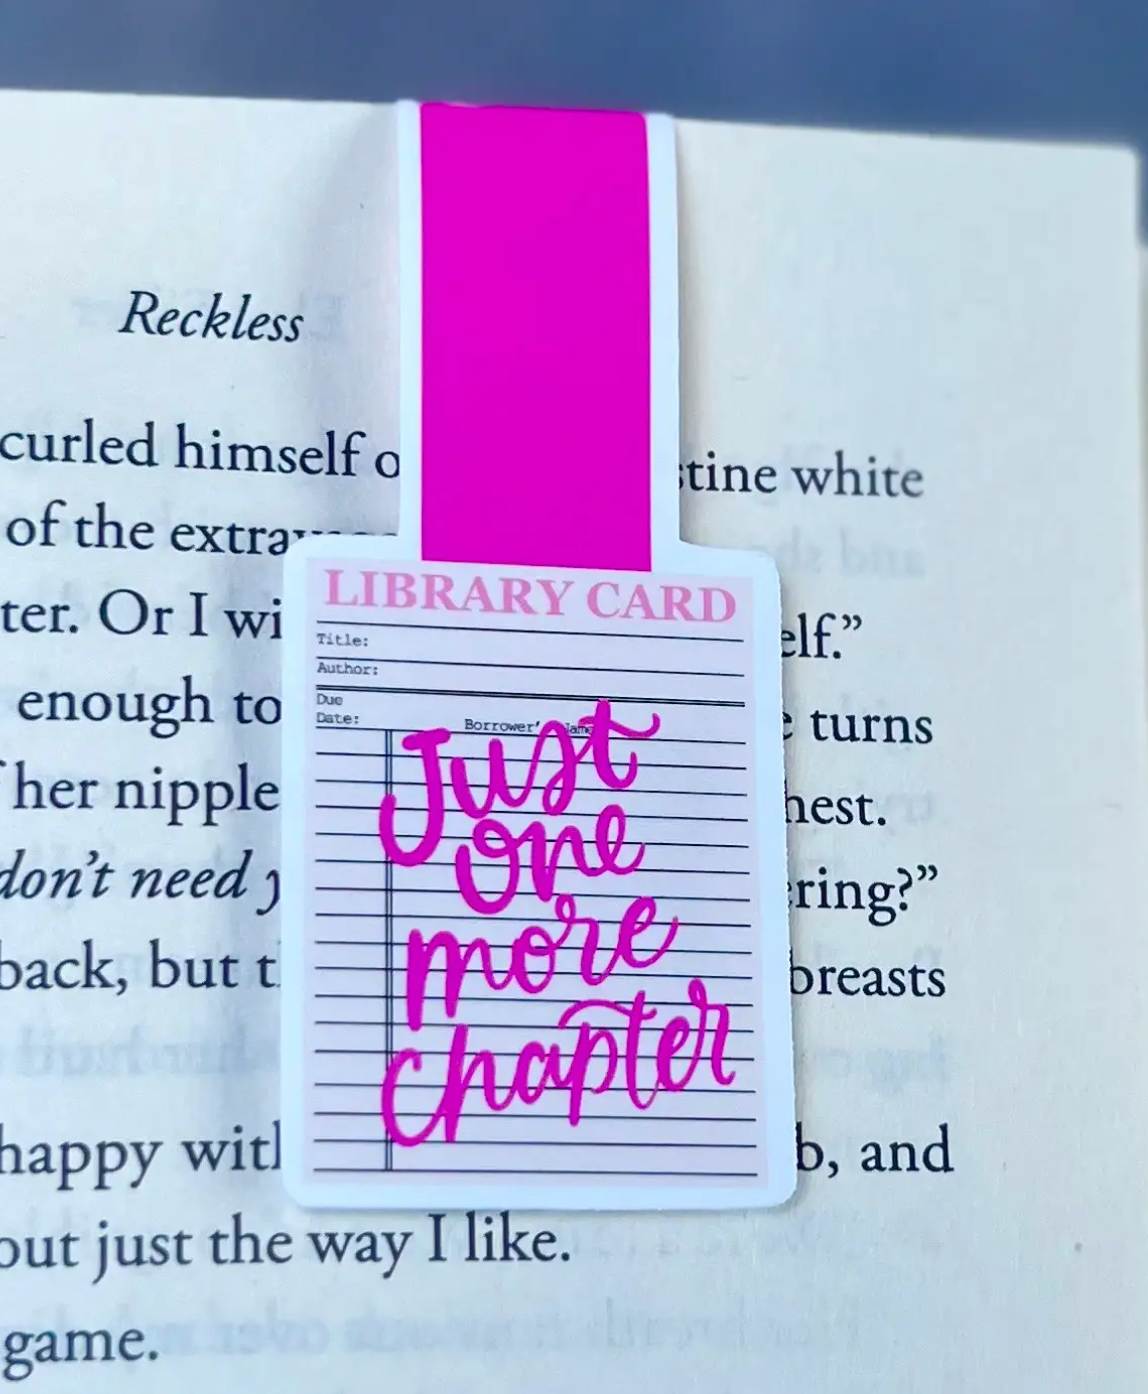 Reckless
curled himself o
stine white
of the extra
LIBRARY CARD
Title:
ter. Or I wi
elf.”
Author:
enough to
Due
Date:
Borrower’
e turns
Just
her nipple
hest.
one
don’t need y
ring?”
more
back, but t
breasts
chapter
happy with
b, and
out just the way I like.
game.